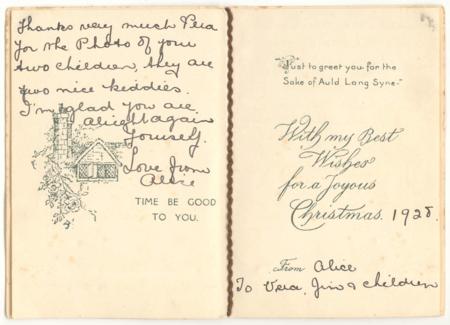 Thanks very much Vera
for the Photo of your
two children, they are
two nice keddies.
I'm glad you are
alright again
yourself.
Love from
Alice
TIME BE GOOD
TO YOU.
"Just to greet you for the
Sake of Auld Lang Syne."
With my Best
Wishes
for a Joyous
Christmas. 1928.
From Alice
To Vera, Jim & children